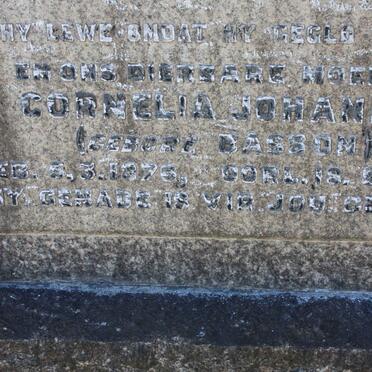 HY LEWE OMDAT HY GEGLO
EN ONS DIERBARE MOE
CORNELIA JOHAN
(GEBORE BASSON)
GEB. 8.3.1876, OORL. 18.
MY GENADE IS VIR JOU GE